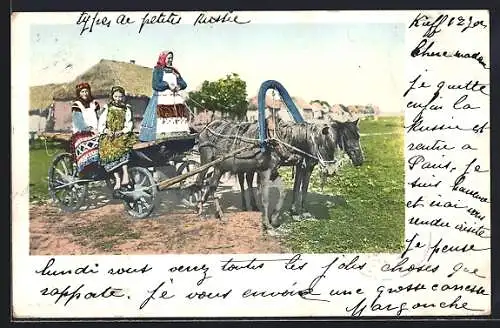 types de petite Russie
Kieff
Chère madame
je quitte
enfin la
Russie et
rentre à
Paris. Je
suis heureuse
et irai vous
rendre visite
je pense
lundi vous verrez toutes les jolies choses que
rapporte. Je vous envoie une grosse caresse